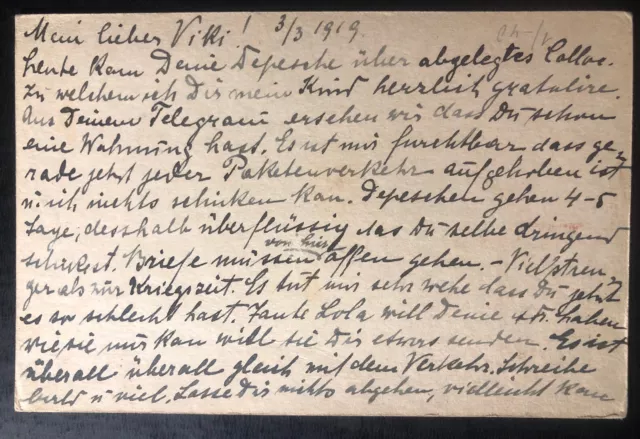 Mein lieber Viki! 3/3 1919.
heute kam Deine Depesche über abgelegtes Colloc.
zu welchem ich Dir mein Kind herzlich gratulire.
Aus Deinem Telegram ersehen wir dass Du schon
eine Wohnung hast. Es ist mir furchtbar dass ge-
rade jetzt jeder Paketenverkehr aufgehoben ist
u. ich nichts schicken kan. Depeschen gehen 4-5
Tage, desshalb überflüssig das Du selbe dringend
schickst. Briefe müssen von hier offen gehen. - Viel stren
ger als zur Kriegszeit. Es tut mir sehr wehe dass Du jetzt
es so schlecht hast. Tante Lola will Deine haben
wie sie nur kan will sie Dir etwas senden. Es ist
überall überall gleich mit dem Verkehr. Schreibe
bald u viel. Lasse Dir nichts abgehen, vielleicht kan